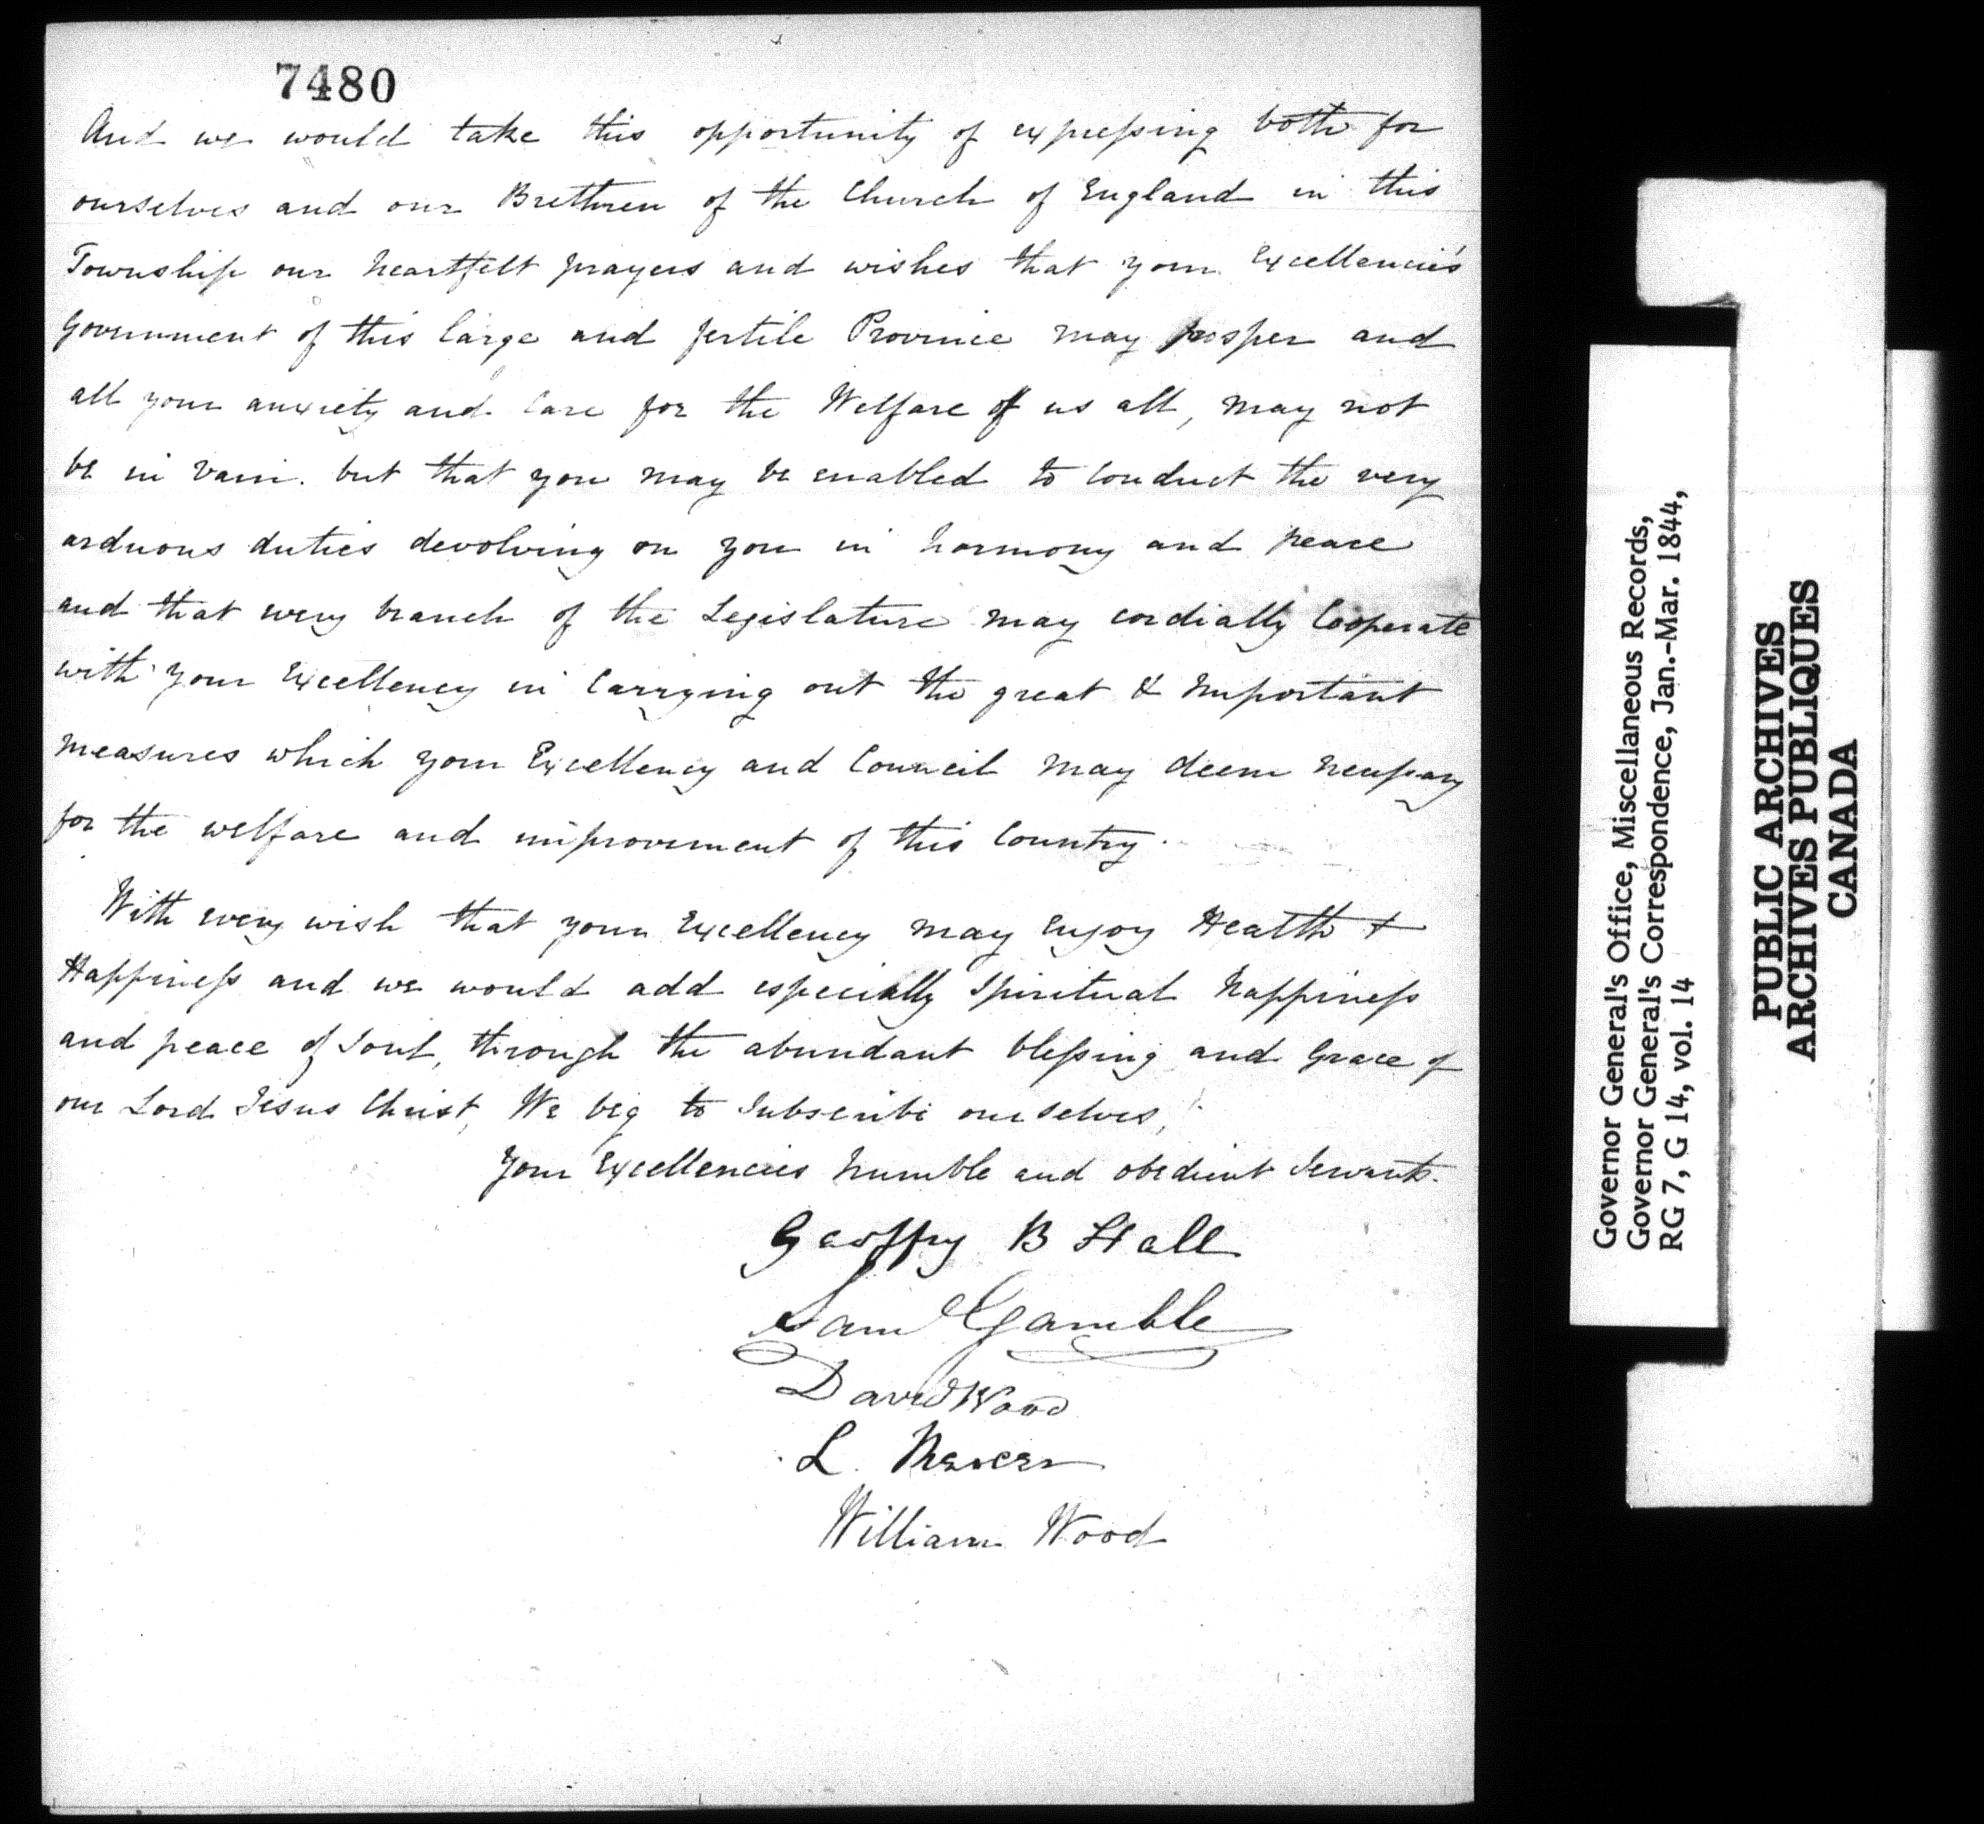 7480
And we would take this opportunity of expressing both for
ourselves and our Brethren of the Church of England in this
Township our heartfelt prayers and wishes that your Excellencie's
Government of this large and fertile Province may prosper and
all your anxiety and Care for the Welfare of us all, may not
be in vain. but that you may be enabled to Conduct the very
arduous duties devolving on you in harmony and peace
and that every branch of the Legislature may cordially Cooperate
with your Excellency in Carrying out the great & Important
measures which your Excellency and Council may deem necessary
for the welfare and improvement of this Country.
With every wish that your Excellency may Enjoy Health &
Happiness and we would add especially Spiritual happiness
and peace of Soul, through the abundant blessing and Grace of
our Lord Jesus Christ, We beg to Subscribe ourselves,
Your Excellencies humble and obedient Servants.
Geoffry B Hall
Saml Gamble
David Wood
L. Mercer
William Wood
Governor General's Office, Miscellaneous Records,
Governor General's Correspondence, Jan.-Mar. 1844,
RG 7, G 14, vol. 14
PUBLIC ARCHIVES
ARCHIVES PUBLIQUES
CANADA